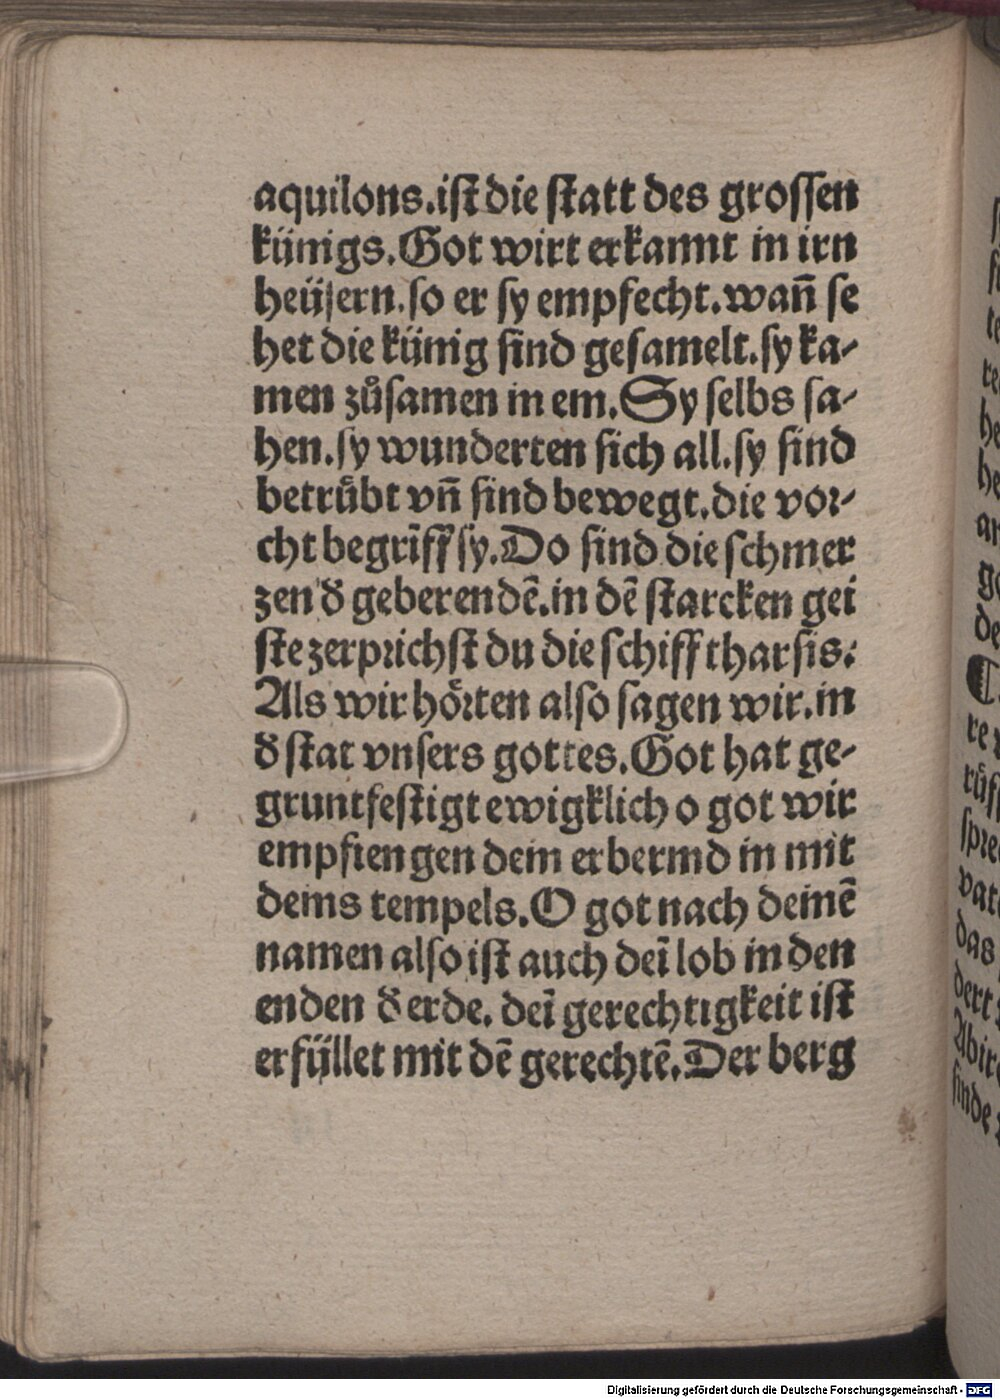 aquilons.ist die statt des grossen
künigs.Got wirt erkannt in irn
heüsern.so er sy empfecht.wañ se
het die künig sind gesamelt.sy ka-
men zůsamen in em.Sy selbs sa-
hen.sy wunderten sich all.sy sind
betrůbt vñ sind bewegt.die vor-
cht begriff sy.Do sind die schmer
zen đ geberendē.in dē starcken gei
ste zerprichst du die schiff tharsis:
Als wir hörten also sagen wir.in
đ stat vnsers gottes.Got hat ge-
gruntfestigt ewigklich o got wir
empfiengen dein erbermd in mit
deins tempels.O got nach deinē
namen also ist auch deī lob in den
enden đ erde. deī gerechtigkeit ist
erfüllet mit dē gerechtē.Der berg
Digitalisierung gefördert durch die Deutsche Forschungsgemeinschaft - DFG